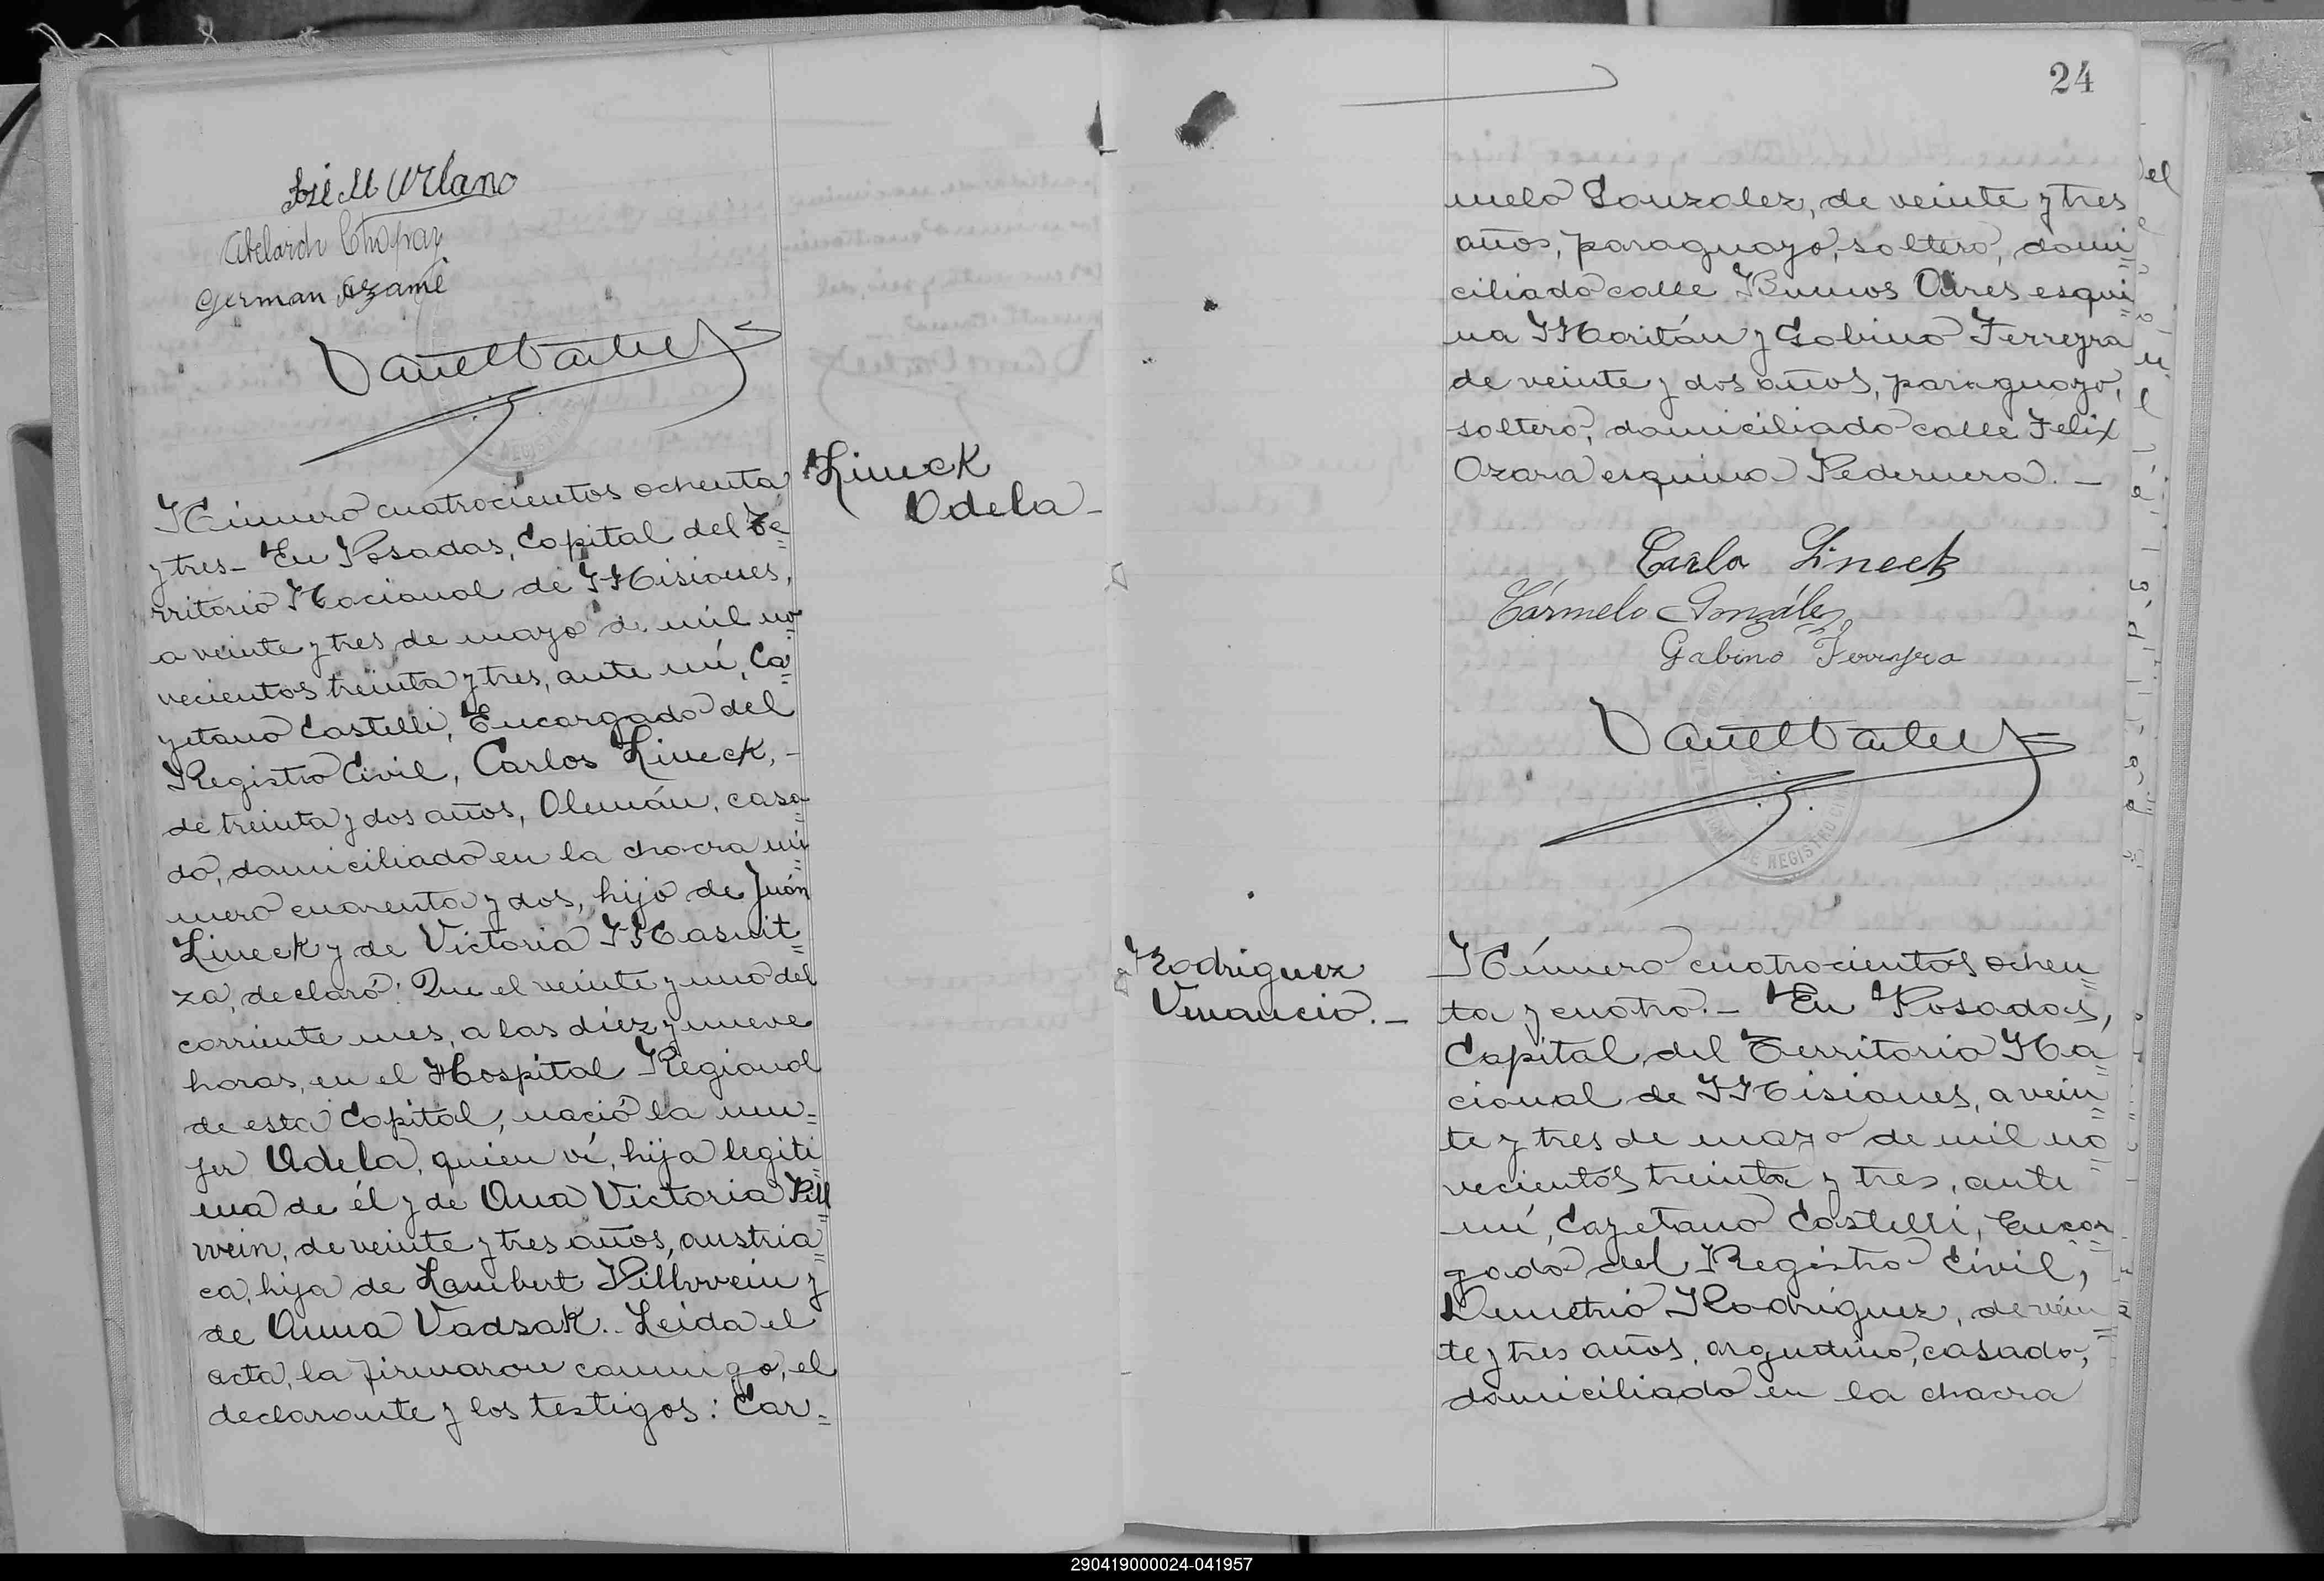 José M Urlano
Abelardo Chapay
German Azame
Número cuatrocientos ochenta
y tres_ En Posadas, Capital del Te=
rritorio Nacional de Misiones,
a veinte y tres de mayo de mil no=
vecientos treinta y tres, ante mí, Ca=
yetano Castelli, Encargado del
Registro Civil, Carlos Lineck, -
de treinta y dos años, Alemán, casa=
do, domiciliado en la chacra nú=
mero cuarenta y dos, hijo de Juán
Lineck y de Victoria Masnit=
za, declaró: Que el veinte y uno del
corriente mes, a las diez y nueve
horas, en el Hospital Regional
de esta Capital, nació la mu=
jer Adela, quien ví, hija legíti=
ma de él y de Ana Victoria Pill=
wein, de veinte y tres años, austria=
ca, hija de Lambert Pillwein y
de Anna Vadsak.. Leida el
acta, la firmaron conmigo, el
declarante y los testigos: Car=
Lineck
Adela_
24
melo Gonzalez, de veinte y tres
años, paraguayo, soltero, domi=
ciliado calle Buenos Aires esqui=
na Moritán y Gabino Ferreyra
de veinte y dos años, paraguayo,
soltero, domiciliado calle Felix
Azara esquina Pedernera._
Carlo Lineck
Cármelo González
Gabino Ferreyra
REGISTRO CIVIL
Rodriguez
Venancio._
Número cuatrocientos ochen=
ta y cuatro._ En Posadas,
Capital del Territorio Na=
cional de Misiones, a vein=
te y tres de mayo de mil no=
vecientos treinta y tres, ante
mí, Cayetano Castelli, Encar=
gado del Registro Civil,
Demetrio Rodríguez, de vein=
te y tres años, argentino, casado,
domiciliado en la chacra
290419000024-041957